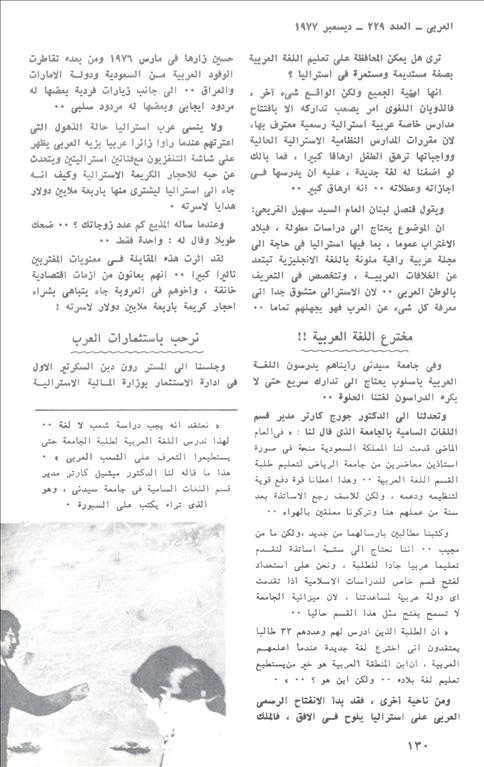 العربى – العدد ٢٢٩ – ديسمبر ١٩٧٧
ترى هل يمكن المحافظة على تعليم اللغة العربية
بصفة مستديمة ومستمرة فى استراليا ؟
انها امنية الجميع ولكن الواقع شىء آخر ،
فالذوبان اللغوى امر يصعب تداركه الا بافتتاح
مدارس خاصة عربية استرالية رسمية معترف بها،
لان مقررات المدارس النظامية الاسترالية الحالية
وواجباتها ترهق الطفل ارهاقا كبيرا ، فما بالك
لو اضفنا له لغة جديدة ، عليه ان يدرسها فى
اجازاته وعطلاته ٠٠ انه ارهاق كبير ٠٠
ويقول قنصل لبنان العام السيد سهيل الفريجى:
ان الموضوع يحتاج الى دراسات مطولة ، فبلاد
الاغتراب عموما ، بما فيها استراليا فى حاجة الى
مجلة عربية راقية ملونة باللغة الانجليزية تبتعد
عن الخلافات العربيــة ، وتتخصص فى التعريف
بالوطن العربى ٠٠ لان الاسترالى متشوق جدا الى
معرفة كل شىء عن العرب فهو يجهلهم تماما ٠٠
مخترع اللغة العربية !!
وفى جامعة سيدنى رأيناهم يدرسون اللغــة
العربية باسلوب يحتاج الى تدارك سريع حتى لا
يكره الدراسون لغتنا الحلوة ٠٠
وتحدثنا الى الدكتور جورج كارتر مدير قسم
اللغات السامية بالجامعة الذى قال لنا : « فى العام
الماضى قدمت لنا المملكة السعودية منحة فى صورة
استاذين محاضرين من جامعة الرياض لتعليم طلبة
القسم اللغة العربية ٠٠ وهذا اعطانا قوة دفع قوية
لتنظيمه ودعمه ، ولكن للاسف رجع الاساتذة بعد
سنة من عملهم هنا وتركونا معلقين بالهواء ٠٠
وكتبنا مطالبين بارسالهما من جديد ،ولكن ما من
مجيب ٠٠ اننا نحتاج الى ستــة اساتذة لنقــدم
تعليما عربيا جادا للطلبة ، ونحن على استعداد
لفتح قسم خاص للدراسات الاسلامية اذا تقدمت
اى دولة عربية لمساعدتنا ، لان ميزانية الجامعة
لا تسمح بفتح مثل هذا القسم حاليا ٠٠
« ان الطلبة الذين ادرس لهم وعددهم ٣٣ طالبا
يعتقدون انى اخترع لغة جديدة عندما اعلمهــم
العربية ، ان ابن المنطقة العربية هو خير من يستطيع
تعليم لغة بلاده ٠٠ ولكن اين هو ؟ ٠٠ » ٠
ومن ناحية أخرى ، فقد بدأ الانفتاح الرسمى
العربى على استراليا يلوح فى الافق ، فالملك
حسين زارها فى مارس ١٩٧٦ ومن بعده تقاطرت
الوفود العربية مــن السعودية ودولــة الامارات
والعراق ٠٠ الى جانب زيارات فردية بعضها له
مردود ايجابى وبعضها له مردود سلبى ٠٠
ولا ينسى عرب استراليا حالة الذهول التى
اعترتهم عندما رأوا زائرا عربيا بزيه العربى يظهر
على شاشة التلفزيون مع فتاتين استراليتين ويتحدث
عن حبه للاحجار الكريمة الاسترالية وكيف انــه
جاء الى استراليا ليشترى منها باربعة ملايين دولار
هدايا لاسرته ٠
وعندما ساله المذيع كم عدد زوجاتك ؟ ٠٠ ضحك
طويلا وقال له : واحدة فقط ٠٠
لقد اثرت هذه المقابلة فــى معنويات المغتربين
تاثيرا كبيرا ٠٠ انهم يعانون من ازمات اقتصادية
خانقة ، واخوهم فى العروبة جاء يتباهى بشراء
احجار كريمة باربعة ملايين دولار لاسرته !
نرحب باستثمارات العرب
وجلسنا الى المستر رون دين السكرتير الاول
فى ادارة الاستثمار بوزارة المالية الاستراليــة
« نعتقد انه يجب دراسة شعب لا لغة ٠٠
لهذا ندرس اللغة العربية لطلبة الجامعة حتى
يستطيعوا التعرف على الشعب العربى » ٠
هذا ما قاله لنا الدكتور ميشيل كارتر مدير
قسم اللغات السامية فى جامعة سيدنى ، وهو
الذى تراه يكتب على السبورة ٠
١٣٠